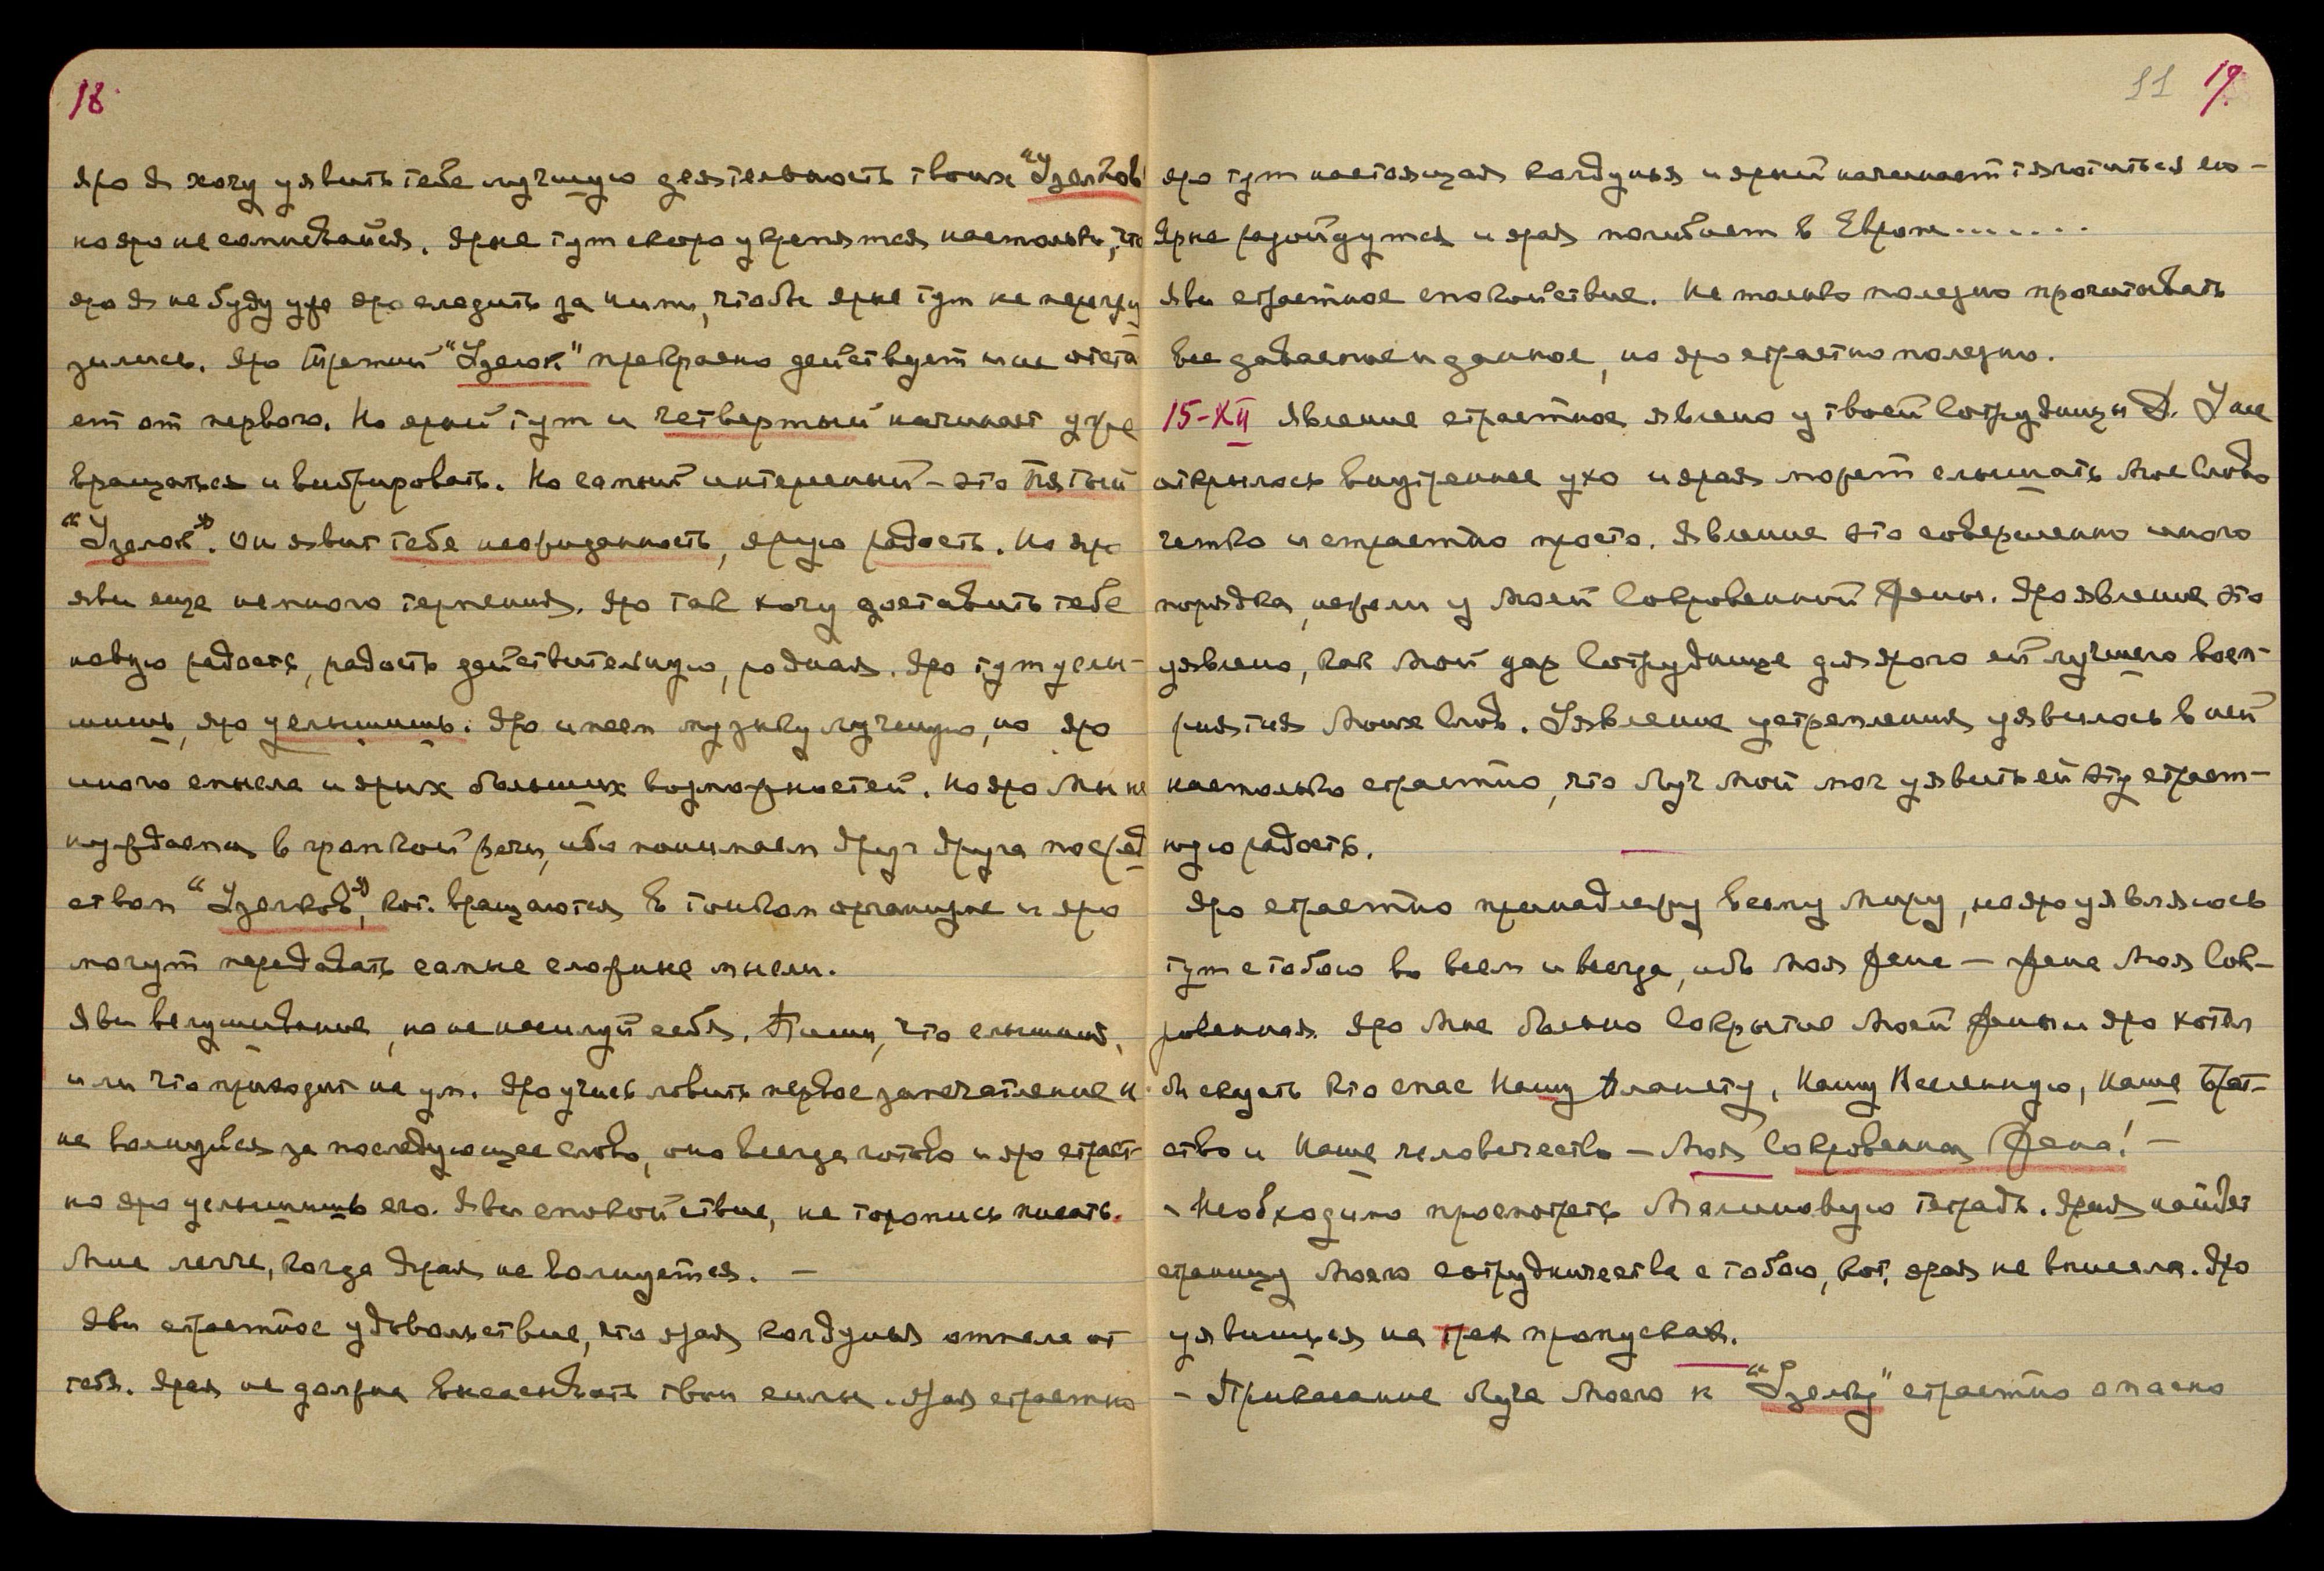 18
Яро Я хочу уявить тебе лучшую деятельность твоих "Узелков"
но яро не сомневайся. Ярые тут скоро укрепятся настолько, что
яро Я не буду уже яро следить за ними, чтобы ярые тут не перегру
зились. Яро Третий "Узелок" прекрасно действует и не отста
ет от первого. Но ярый тут и четвертый начинает уже
вращаться и вибрировать. Но самый интересный – это Пятый
"Узелок". Он явит тебе неожиданность, ярую радость. Но яро
яви еще немного терпения. Яро так хочу доставить тебе
новую радость, радость действительную, родная. Яро тут услы-
шишь, яро услышишь. Яро имеем музыку лучшую, но яро
иного смысла и ярых больших возможностей. Но яро Мы не
нуждаемся в громкой речи, ибо понимаем друг друга посред
ством "Узелков", кот. вращаются в тонком организме и яро
могут передавать самые сложные мысли.
Яви вслушивание, но не насилуй себя. Пиши, что слышишь,
или что приходит на ум. Яро учись ловить первое запечатление и
не волнуйся за последующее слово, оно всегда готово и яро страст-
но яро услышишь его. Яви спокойствие, не торопись писать.
Мне легче, когда ярая не волнуется. –
Яви страстное удовольствие, что ярая колдунья отпала от
тебя. Ярая не должна высасывать твои силы. Ярая страстно
11 19
яро тут настоящая колдунья и ярый начинает тяготиться ею –
Ярые разойдутся и ярая погибает в Европе.......
Яви страстное спокойствие. Не только полезно прочитывать
все даваемое и данное, но яро страстно полезно.
15-XII Явление страстное явлено у твоей Сотрудницы Д. У нее
открылось внутреннее ухо и ярая может слышать Мое Слово
четко и страстно просто. Явление это совершенно иного
порядка, нежели у Моей Сокровенной Жены. Яро явление это
уявлено, как Мой дар Сотруднице для ярого ей лучшего восп-
риятия Моих Слов. Уявление устремления уявилось в ней
настолько страстно, что Луч Мой мог уявить ей эту страст-
ную радость.
Яро страстно принадлежу всему Миру, но яро уявляюсь
тут с тобою во всем и всегда, ибо Моя Жена – Жена Моя Сок-
ровенная. Яро Мне больно Сокрытие Моей Жены и яро хотел
бы сказать кто спас Нашу Планету, Нашу Вселенную, Наше Брат-
ство и Наше человечество – Моя Сокровенная Жена! –
– Необходимо просмотреть Малиновую тетрадь. Ярая найдет
страницу Моего сотрудничества с тобою, кот. ярая не вписала. Яро
уявишься на трех пропусках.
– Прикасание Луча Моего к "Узелку" страстно опасно